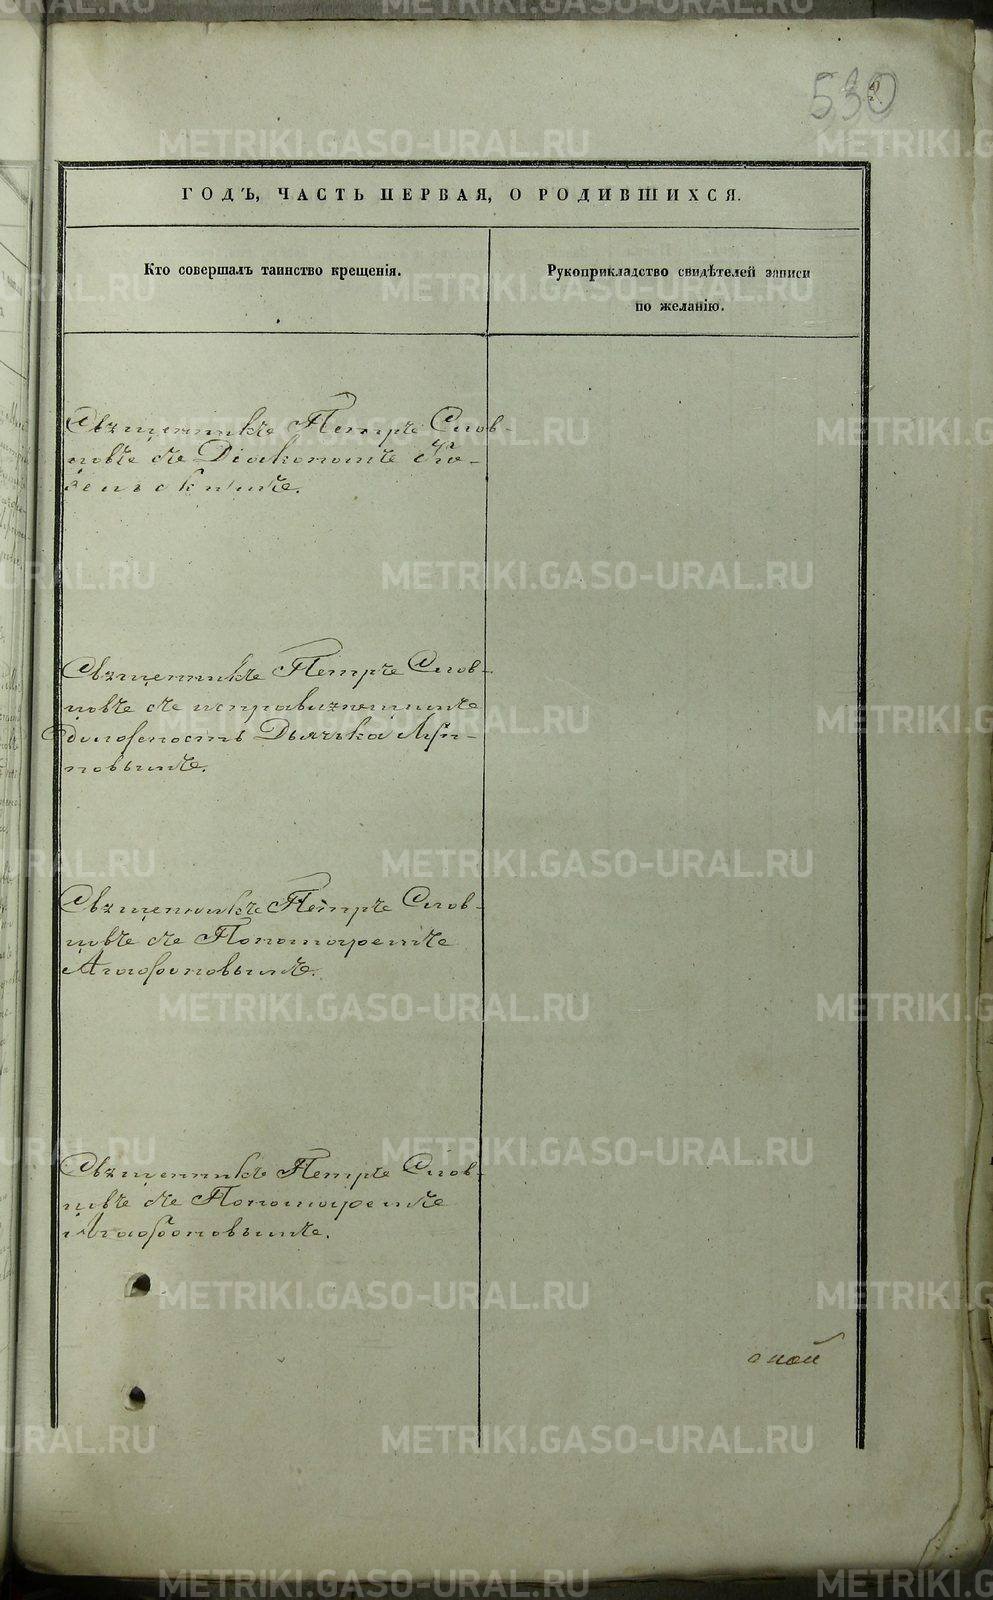 530
ГОДЪ, ЧАСТЬ ПЕРВАЯ, О РОДИВШИХСЯ.
Кто совершалъ таинство крещенія.
Рукоприкладство свидѣтелей записи
по желанію.
Священникъ Петръ Слов-
цовъ съ Діакономъ
Священникъ Петръ Слов-
цовъ съ исправляющимъ
должность Дьячка
новымъ.
Священникъ Петръ Слов-
цовъ съ Пономаремъ
Агафоновымъ.
Священникъ Петръ Слов-
цовъ съ Пономаремъ
Агафоновымъ.
METRIKI.GASO-URAL.RU